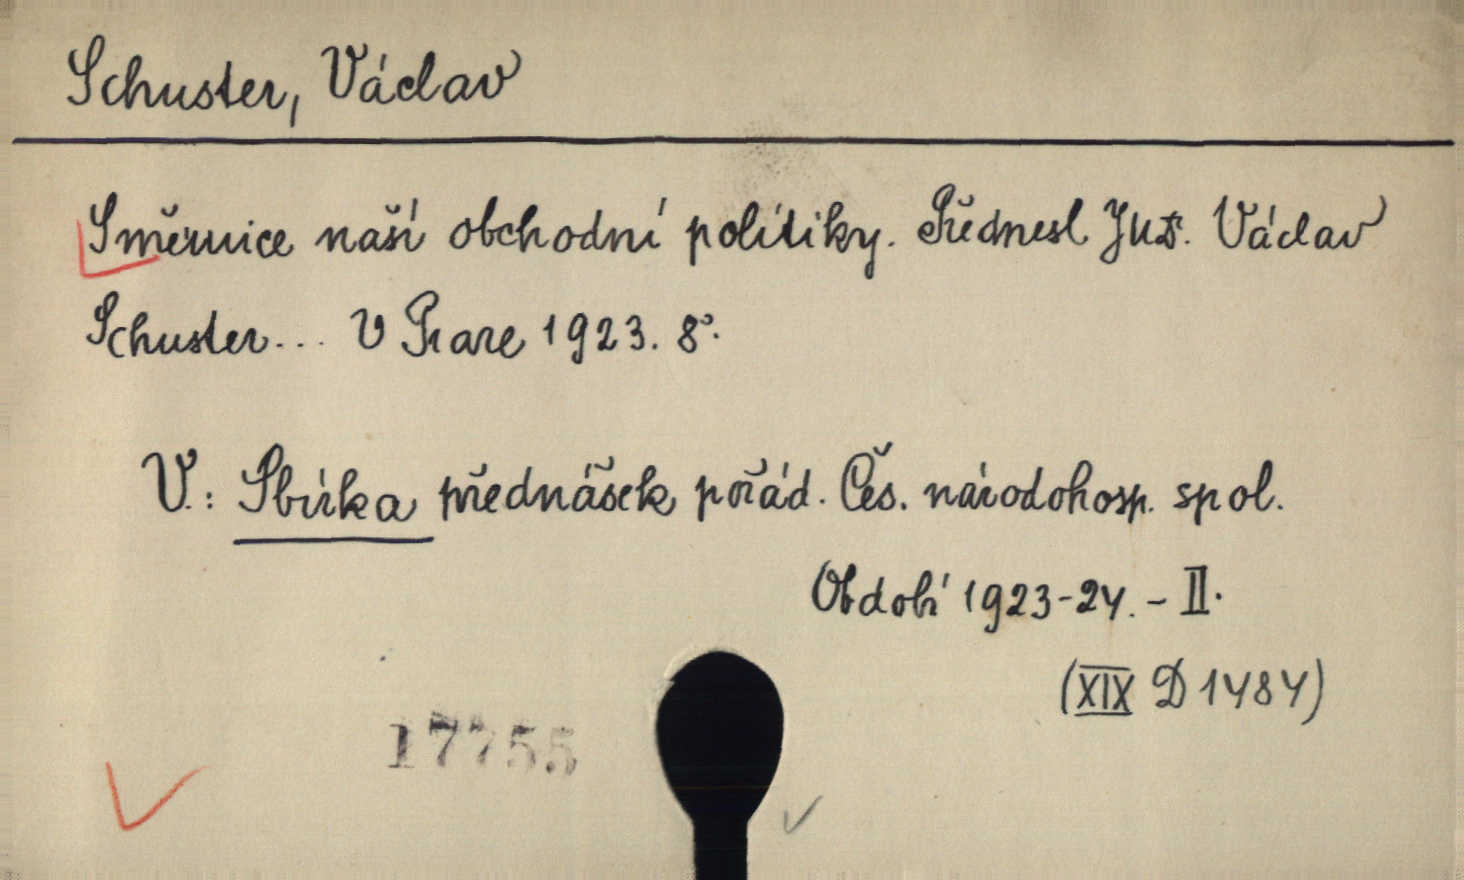 Schuster, Václav
Směrnice naší obchodní politiky. Přednesl JUD. Václav
Schuster... V Praze 1923. 8°.
V.: Sbírka přednášek pořád. Čes. národohosp. spol.
Období 1923-24. - II.
(XIX D 1484)
17755